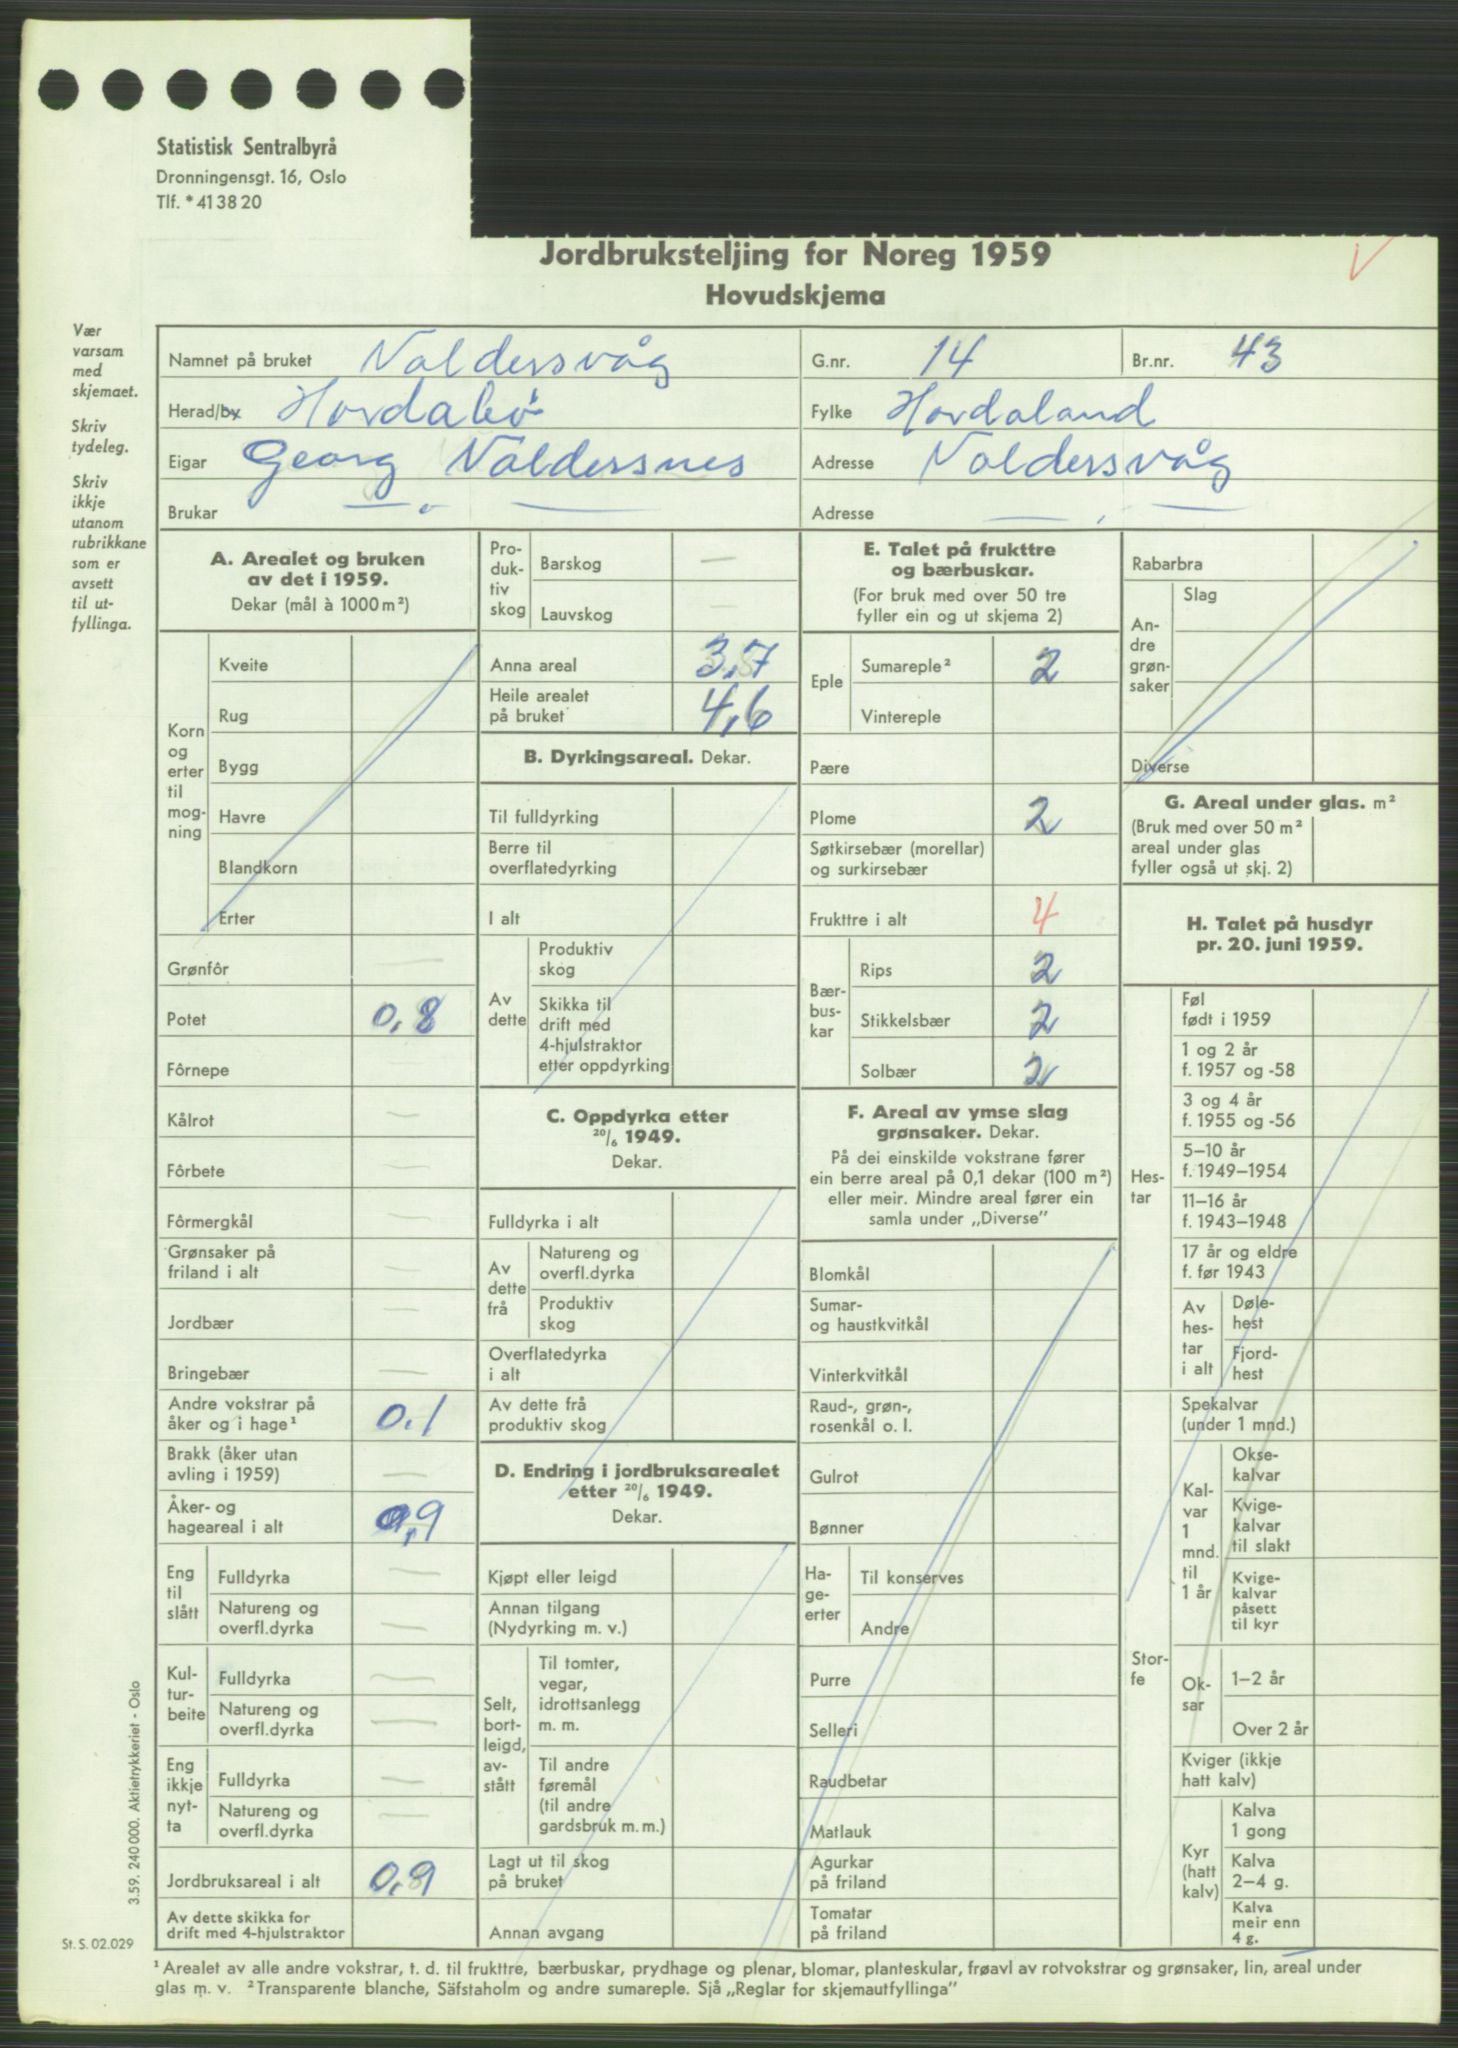 Statistisk Sentralbyrå
Dronningensgt. 16, Oslo
Tlf. * 41 38 20
Jordbruksteljing for Noreg 1959
Hovudskjema
Vær
varsam
med
skjemaet.
Skriv
tydeleg.
Skriv
ikkje
utanom
rubrikkane
som er
avsett
til ut-
fyllinga.
Namnet på bruket Valdersvåg G.nr. 14 Br.nr. 43
Herad/by Hordabø Fylke Hordaland
Eigar Georg Valdersnes Adresse Valdersvåg
Brukar — „ — Adresse — „ —
A. Arealet og bruken
av det i 1959.
Dekar (mål à 1000 m²)
Korn
og
erter
til
mog-
ning
Kveite
Rug
Bygg
Havre
Blandkorn
Erter
Grønfôr —
Potet 0,8
Fôrnepe —
Kålrot —
Fôrbete —
Fôrmergkål —
Grønsaker på
friland i alt —
Jordbær —
Bringebær —
Andre vokstrar på
åker og i hage¹ 0.1
Brakk (åker utan
avling i 1959) —
Åker- og
hageareal i alt 0,9
Eng
til
slått
Fulldyrka —
Natureng og
overfl.dyrka —
Kul-
tur-
beite
Fulldyrka —
Natureng og
overfl.dyrka —
Eng
ikkje
nyt-
ta
Fulldyrka —
Natureng og
overfl.dyrka —
Jordbruksareal i alt 0,9
Av dette skikka for
drift med 4-hjulstraktor
Pro-
duk-
tiv
skog
Barskog —
Lauvskog —
Anna areal 3,7
Heile arealet
på bruket 4,6
B. Dyrkingsareal. Dekar.
Til fulldyrking
Berre til
overflatedyrking
I alt
Av
dette
Produktiv
skog
Skikka til
drift med
4-hjulstraktor
etter oppdyrking
C. Oppdyrka etter
20/6 1949.
Dekar.
Fulldyrka i alt
Av
dette
frå
Natureng og
overfl.dyrka
Produktiv
skog
Overflatedyrka
i alt
Av dette frå
produktiv skog
D. Endring i jordbruksarealet
etter 20/6 1949.
Dekar.
Kjøpt eller leigd
Annan tilgang
(Nydyrking m. v.)
Selt,
bort-
leigd,
av-
stått
Til tomter,
vegar,
idrottsanlegg
m. m.
Til andre
føremål
(til andre
gardsbruk m. m.)
Lagt ut til skog
på bruket
Annan avgang
E. Talet på frukttre
og bærbuskar.
(For bruk med over 50 tre
fyller ein og ut skjema 2)
Eple
Sumareple² 2
Vintereple
Pære
Plome 2
Søtkirsebær (morellar)
og surkirsebær
Frukttre i alt 4
Bær-
bus-
kar
Rips 2
Stikkelsbær 2
Solbær 2
F. Areal av ymse slag
grønsaker. Dekar.
På dei einskilde vokstrane fører
ein berre areal på 0,1 dekar (100 m²)
eller meir. Mindre areal fører ein
samla under „Diverse”
Blomkål
Sumar-
og haustkvitkål
Vinterkvitkål
Raud-, grøn-,
rosenkål o. l.
Gulrot
Bønner
Ha-
ge-
erter
Til konserves
Andre
Purre
Selleri
Raudbetar
Matlauk
Agurkar
på friland
Tomatar
på friland
Rabarbra
An-
dre
grøn-
saker
Slag
Diverse
G. Areal under glas. m²
(Bruk med over 50 m²
areal under glas
fyller også ut skj. 2)
H. Talet på husdyr
pr. 20. juni 1959.
Hes-
tar
Føl
født i 1959
1 og 2 år
f. 1957 og -58
3 og 4 år
f. 1955 og -56
5–10 år
f. 1949–1954
11–16 år
f. 1943–1948
17 år og eldre
f. før 1943
Av
hes-
tar
i alt
Døle-
hest
Fjord-
hest
Stor-
fe
Spekalvar
(under 1 mnd.)
Kal-
var
1
mnd.
til
1 år
Okse-
kalvar
Kvige-
kalvar
til slakt
Kvige-
kalvar
påsett
til kyr
Ok-
sar
1–2 år
Over 2 år
Kviger (ikkje
hatt kalv)
Kyr
(hatt
kalv)
Kalva
1 gong
Kalva
2–4 g.
Kalva
meir enn
4 g.
3.59. 240 000. Aktietrykkeriet - Oslo
St. S. 02.029
¹ Arealet av alle andre vokstrar, t. d. til frukttre, bærbuskar, prydhage og plenar, blomar, planteskular, frøavl av rotvokstrar og grønsaker, lin, areal under
glas m. v. ² Transparente blanche, Säfstaholm og andre sumareple. Sjå „Reglar for skjemautfyllinga”